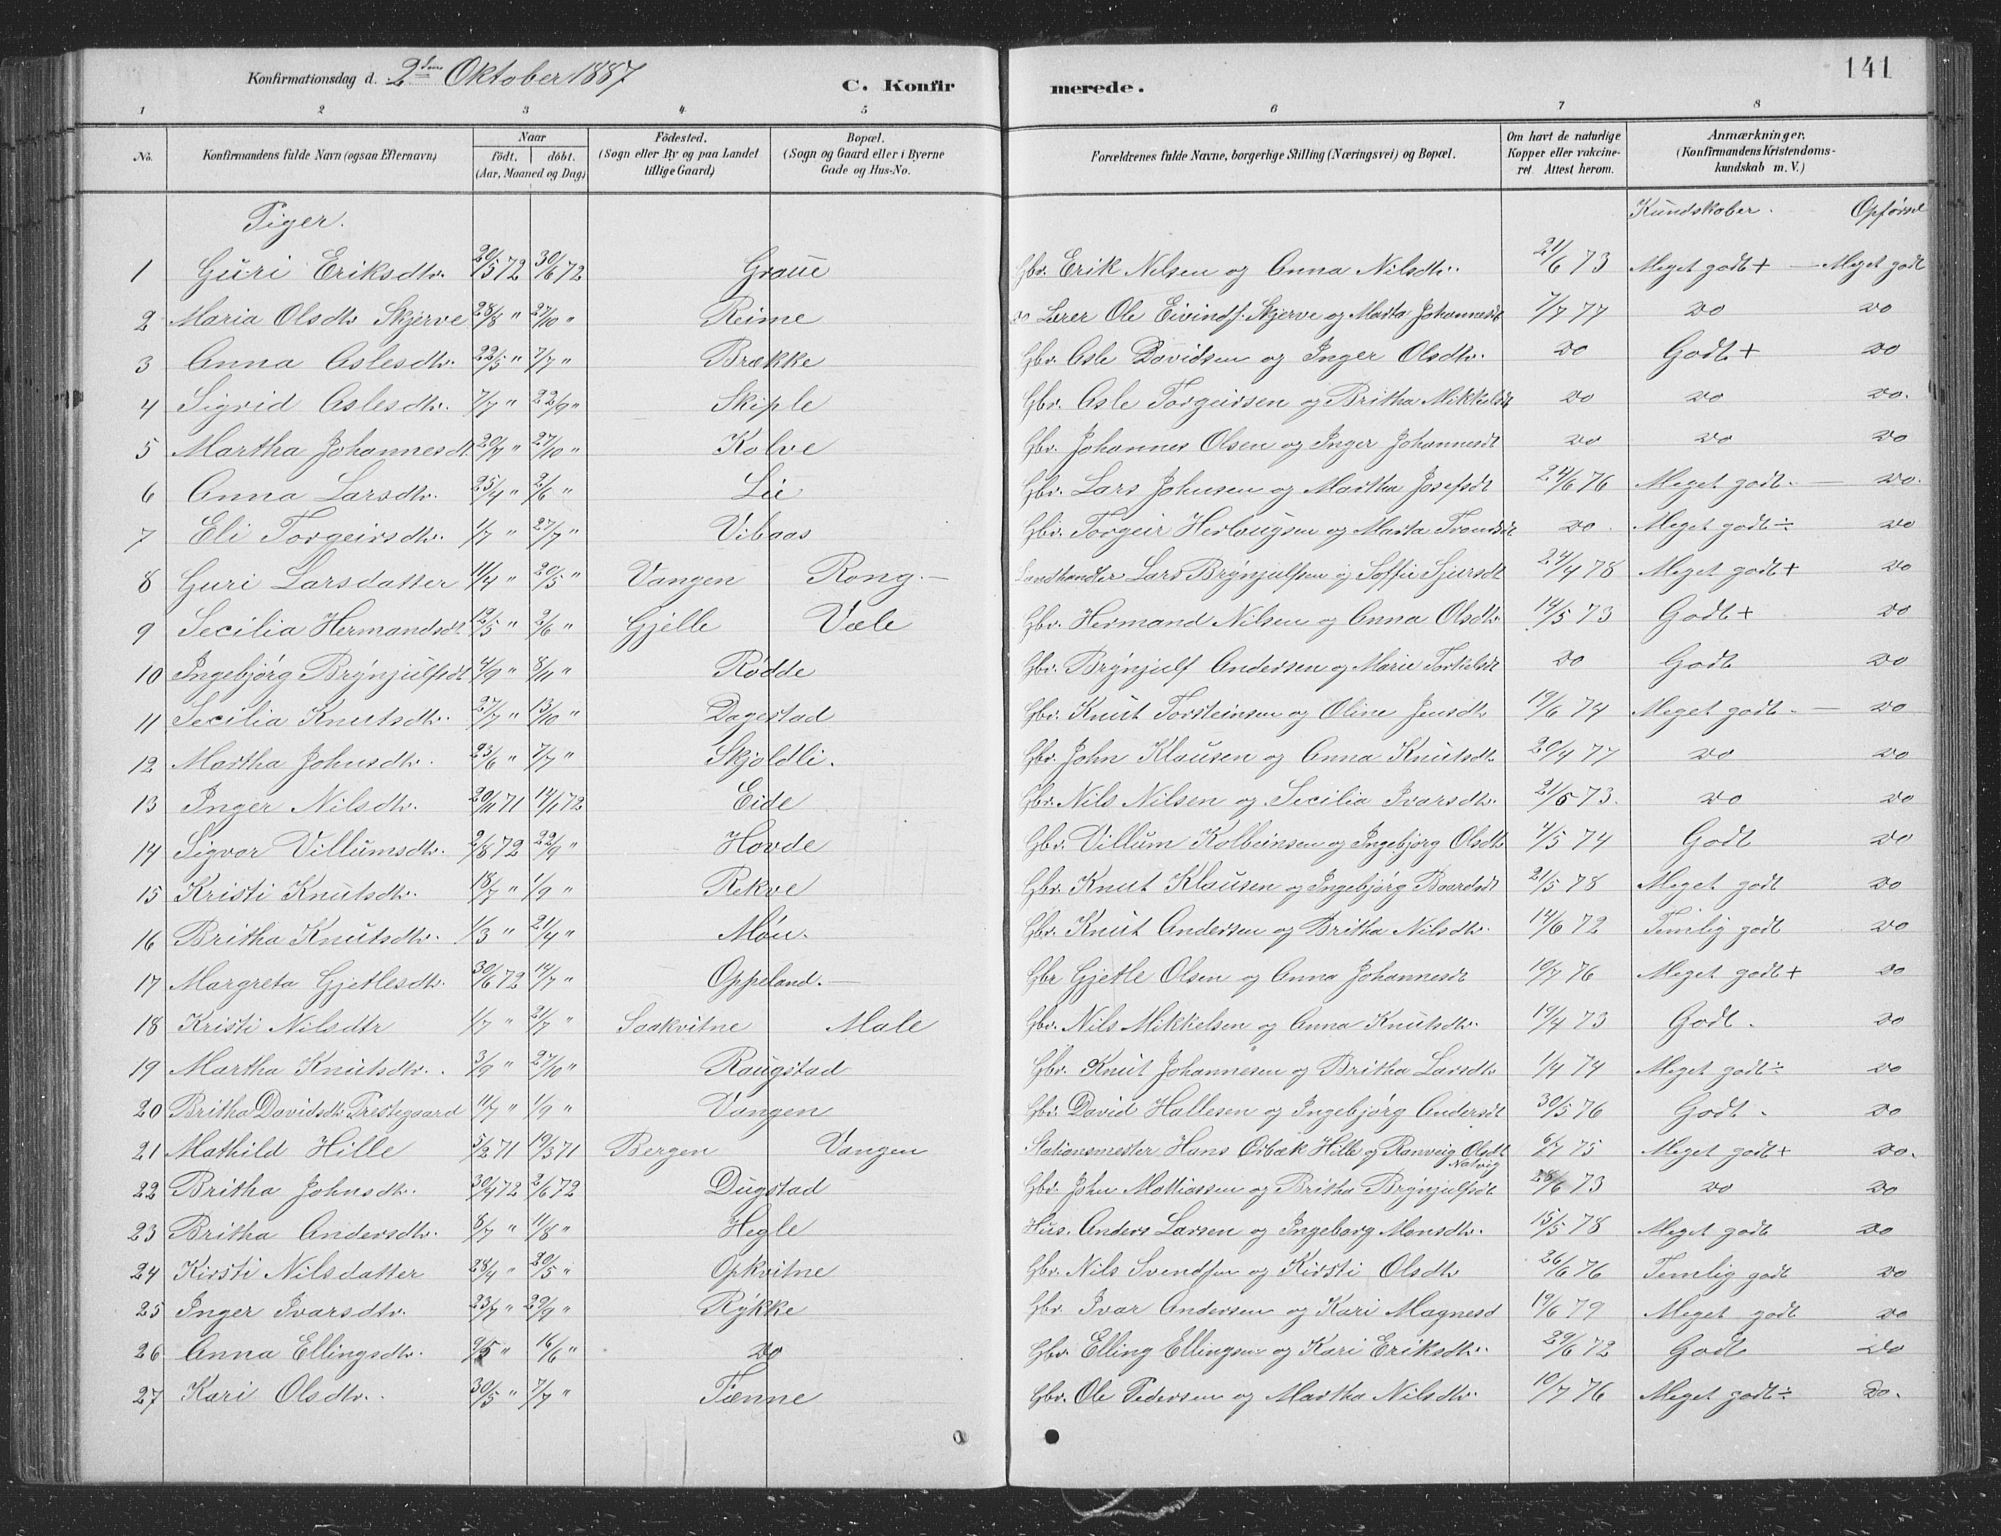 Konfirmationsdag d. 2den Oktober 1887
C. Konfirmerede.
141
1 2 3 4 5 6 7 8
No. Konfirmandens fulde Navn (ogsaa Efternavn) Naar födt. döbt. (Aar, Maaned og Dag) Födested. (Sogn eller By og paa Landet tillige Gaard) Bopæl. (Sogn og Gaard eller i Byerne Gade og Hus-No. Forældrenes fulde Navne, borgerlige Stilling (Næringsvei) og Bopæl. Om havt de naturlige Kopper eller vaccineret. Attest herom. Anmærkninger. (Konfirmandens Kristendomskundskab m. V.)
Piger. Kundskaber. Opførsel
1 Guri Eriksdtr. 20/5 72 30/6 72 Graue Gbr. Erik Nilsen og Anna Nilsdtr. 21/6 73 Meget godt + — Meget godt
2 Maria Olsdtr Skjerve 23/8 " 27/10 " Reime do Lærer Ole Eivinds. Skjerve og Marta Johannesdt 7/7 77 do do
3 Anna Aslesdtr. 22/5 " 7/7 " Brække Gbr. Asle Davidsen og Inger Olsdtr. do Godt + do
4 Sigrid Aslesdtr. 7/7 " 22/9 " Skiple Gbr. Asle Torgeirsen og Britha Mikkelsdt do do do.
5 Martha Johannesdt 20/7 " 27/10 " Kolve Gbr. Johannes Olsen og Inger Johannesdt do do do
6 Anna Larsdtr. 25/4 " 2/6 " Lie Gbr. Lars Johnsen og Martha Josefsdt 24/6 76 Meget godt. — do.
7 Eli Torgeirsdtr. 1/7 " 27/7 " Vibaas Gbr. Torgeir Herlaugsen og Marta Trondsdt do. Meget godt ÷ do
8 Guri Larsdatter 11/4 " 20/5 " Vangen Rong. — Landhandler Lars Brynjulfsen og Soffie Sjursdt 24/4 78 Meget godt + do
9 Secilia Hermandsdt. 12/5 " 2/6 " Gjelle Væle Gbr. Hermand Nilsen og Anna Olsdtr. 14/5 73 Godt + do
10 Ingebjørg Brynjulfsdt 4/9 " 8/11 " Rødde Gbr. Brynjulf Andersen og Marie Torkelsdt do Godt do
11 Secilia Knutsdtr. 27/7 " 13/10 " Dagestad Gbr. Knut Torsteinsen og Oline Jensdtr 19/6 74 Meget godt. — do
12 Martha Johnsdtr. 23/6 " 7/7 " Skjoldli. Gbr. John Klausen og Anna Knutsdtr. 20/4 77 do do
13 Inger Nilsdtr. 20/11 71 14/1 72 Eide Gbr. Nils Nilsen og Secilia Ivarsdtr. 21/5 73. do do
14 Sigvor Villumsdtr. 2/8 72 22/9 " Hovde Gbr. Villum Kolbeinsen og Ingebjørg Olsdtr 4/5 74 Godt do
15 Kristi Knutsdtr. 18/7 " 1/9 " Rekve Gbr. Knut Klausen og Ingebjørg Baardsdt 21/5 78 Meget godt do
16 Britha Knutsdtr. 1/3 " 21/4 " Møn. Gbr. Knut Andersen og Britha Nilsdtr. 14/6 72 Temlig godt do
17 Margreta Gjetlesdtr. 30/6 72 14/7 " Oppeland. — Gbr Gjetle Olsen og Anna Johannesdt 10/7 76 Meget godt + do
18 Kristi Nilsdtr 1/7 " 21/7 " Saakvitne Male Gbr. Nils Mikkelsen og Anna Knutsdtr. 19/4 73 Godt. do
19 Martha Knutsdtr. 3/9 " 27/10 " Raugstad Gbr. Knut Johannesen og Britha Larsdtr 1/4 74 Meget godt ÷ do
20 Britha Davidsdtr. Prestegaard 11/7 " 1/9 " Vangen Gbr. David Hallesen og Ingebjørg Andersdt 30/5 76 Godt. do
21 Mathild Hille 5/2 71 19/3 71 Bergen Vangen Stationsmester Hans Orbæk Hille og Ranveig Olsdt Natvig 6/7 75 Meget godt + do.
22 Britha Johnsdtr. 30/4 72 2/6 72 Dugstad Gbr. John Mattiassen og Britha Brynjulfsdt 28/6 73 do do
23 Britha Andersdtr. 8/7 " 11/8 " Hegle Hus. Anders Larsen og Ingeborg Monsdtr. 15/5 78 Meget godt do
24 Kirsti Nilsdatter 28/4 " 20/5 " Opkvitne Gbr. Nils Svendsen og Kirsti Olsdtr 26/6 76 Temlig godt do
25 Inger Ivarsdtr. 23/7 " 29/9 " Rykke Gbr. Ivar Andersen og Kari Magnesd 19/6 79 Meget godt do
26 Anna Ellingsdtr. 9/5 " 16/6 " do Gbr. Elling Ellingsen og Kari Eriksdtr. 29/6 72 Godt do
27 Kari Olsdtr. 30/5 " 7/7 " Tænne Gbr. Ole Pedersen og Martha Nilsdtr. 10/7 76 Meget godt ÷ do.